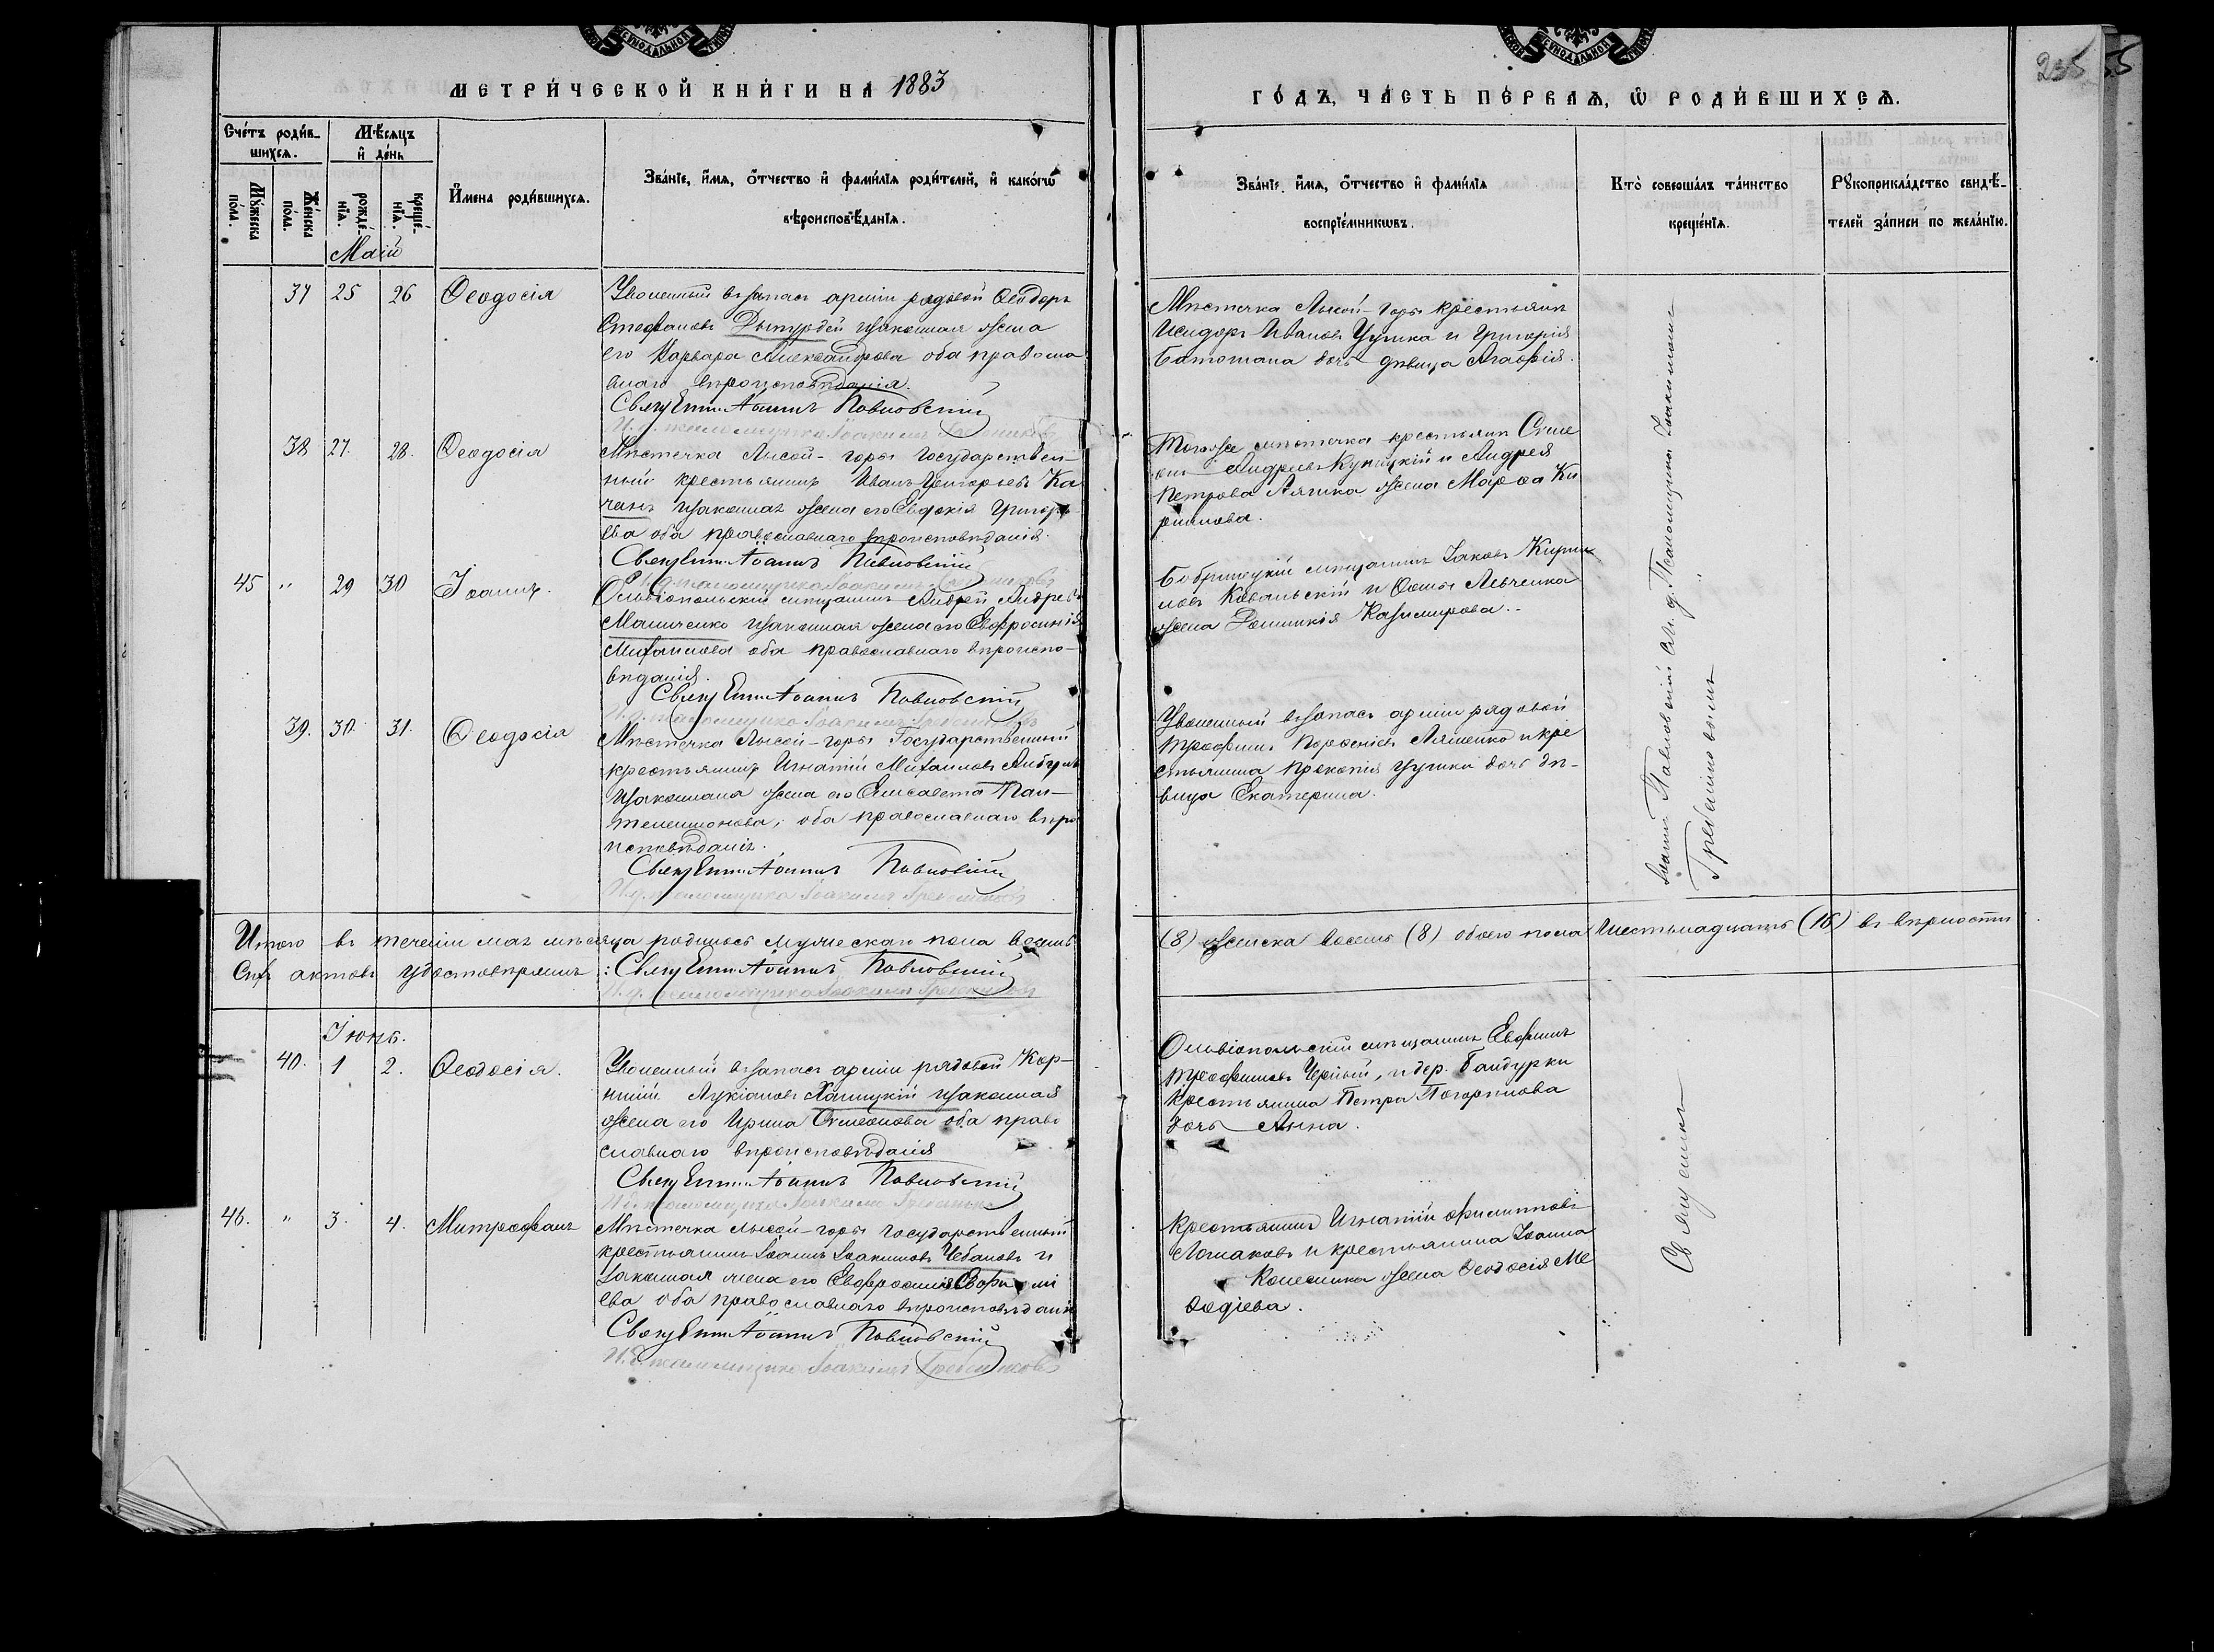 МЕТРИ́ЧЕСКОЙ КНИ́ГИ НА 1883
ГО́ДЪ, ЧА́СТЬ ПЕ́РВАЯ, Ѡ РОДИ́ВШИХСЯ.
235
Сче́тъ роди́в-
шихся.
Мѣ́сяцъ
и҆ де́нь
Му́жеска по́ла.
Же́нска по́ла.
рожде́-нїя.
креще́-нїя.
И҆мена роди́вшихся.
Зва́нїе, и҆́мя, ѻ҆́тчество и҆ фами́лїя роди́телей, и҆ како́гѡ
вѣроисповѣ́данїя.
Зва́нїе, и҆́мя, ѻ҆́тчество и҆ фами́лїя
воспрїе́мникѡвъ.
Кто̀ соверша́лъ та́инство
креще́нїя.
Рꙋкоприкла́дство свидѣ́-
телей за́писи по жела́нїю.
Маій
37 25 26 Ѳеодосія
Уволенный въ запасъ арміи рядовой Ѳеодоръ
Стефановъ законная жена
его Варвара Александрова оба правосла
внаго вѣроисповѣданія.
Свящ Іоаннъ Павловскій
Мѣстечка Лысой-горы крестьянинъ
Исидоръ Ивановъ и Григорія
дочь дѣвица Агафія.
38 27. 28. Ѳеодосія
Мѣстечка Лысой-горы государствен-
ный крестьянинъ Иванъ Григорьевъ Ка
чанъ законная жена его Евдокія Григорь
ева оба православнаго вѣроисповѣданія.
Свящ Іоаннъ Павловскій
Тогоже мѣстечка крестьянинъ Симе
онъ Андреевъ Куницкій и Андрея
Петрова Ляшка жена Марѳа Ки
рилова.
45 " 29 30 Іоаннъ.
Ольвіопольскій мѣщанинъ Андрей Андреевъ
Манченко законная жена его Евфросинія
Михаилова оба православнаго вѣроиспо-
вѣданія.
Свящ Іоаннъ Павловскій
Бобринецкій мѣщанинъ Іаковъ Кирил
ловъ Ковальскій и Левченка
жена Доминикія Казимирова.
39. 30. 31. Ѳеодосія
Мѣстечка Лысой-горы Государственный
крестьянинъ Игнатій Михаиловъ
законная жена его Елисавета Пан-
телеимонова, оба православнаго вѣро
исповѣданія.
Свящ Іоаннъ Павловскій
Уволенный въ запасъ арміи рядовой
Трофимъ Ляшенко и кре
стьянина Прокопія дочь дѣ-
вица Екатерина.
Іоаннъ Павловскій съ и. д. Псаломщика Іоакимомъ
Гребенниковымъ
Итого въ теченіи мая мѣсяца родилось мужескаго пола восемь (8) женска восемь (8) обоего пола шестьнадцать (16) въ вѣрности
сихъ актовъ удостовѣряемъ: Свящ Іоаннъ Павловскій
И. д. псаломщика Іоакимъ Гребенниковъ
Іюнь.
40. 1 2. Ѳеодосія.
Уволенный въ запасъ арміи рядовой Кор-
нилій Лукіановъ законная
жена его Ирина Симеонова оба право
славнаго вѣроисповѣданія
Свящ Іоаннъ Павловскій
Ольвіопольскій мѣщанинъ Евфимъ
Трофимовъ Черный, и дер. Бандурки
крестьянина Петра Погорѣлова
дочь Анна.
46. " 3. 4. Митрофанъ
Мѣстечка лысой-горы государственный
крестьянинъ Іоаннъ Іоакимовъ Чебановъ и
законная жена его Евфросинія Евфимі
ева оба православнаго вѣроисповѣданія
Свящ Іоаннъ Павловскій
И. д. псаломщика Іоакимъ Гребенниковъ
Крестьянинъ Игнатій Филиповъ
и крестьянина Іоанна
Колесника жена Ѳеодосія Ме
ѳодіева.
Священникъ